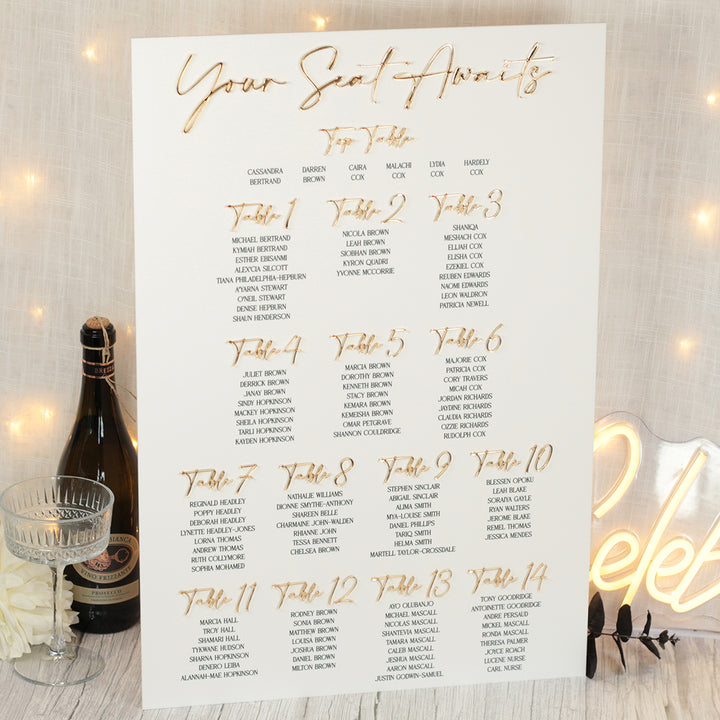 Your Seat Awaits
Top Table
CASSANDRA BERTRAND
DARREN BROWN
CAIRA COX
MALACHI COX
LYDIA COX
HARDELY COX
Table 1
MICHAEL BERTRAND
KYMIAH BERTRAND
ESTHER EBISANMI
ALEX'CIA SILCOTT
TIANA PHILADELPHIA-HEPBURN
A'YARNA STEWART
O'NEIL STEWART
DENISE HEPBURN
SHAUN HENDERSON
Table 2
NICOLA BROWN
LEAH BROWN
SIOBHAN BROWN
KYRON QUADRI
YVONNE MCCORRIE
Table 3
SHANIQA
MESHACH COX
ELIJAH COX
ELISHA COX
EZEKIEL COX
REUBEN EDWARDS
NAOMI EDWARDS
LEON WALDRON
PATRICIA NEWELL
Table 4
JULIET BROWN
DERRICK BROWN
JANAY BROWN
SINDY HOPKINSON
MACKEY HOPKINSON
SHEILA HOPKINSON
TARLI HOPKINSON
KAYDEN HOPKINSON
Table 5
MARCIA BROWN
DOROTHY BROWN
KENNETH BROWN
STACY BROWN
KEMARA BROWN
KEMEISHA BROWN
OMAR PETGRAVE
SHANNON COULDRIDGE
Table 6
MAJORIE COX
PATRICIA COX
CORY TRAVERS
MICAH COX
JORDAN RICHARDS
JAYDINE RICHARDS
CLAUDIA RICHARDS
OZZIE RICHARDS
RUDOLPH COX
Table 7
REGINALD HEADLEY
POPPY HEADLEY
DEBORAH HEADLEY
LYNETTE HEADLEY-JONES
LORNA THOMAS
ANDREW THOMAS
RUTH COLLYMORE
SOPHIA MOHAMED
Table 8
NATHALIE WILLIAMS
DIONNE SMYTHE-ANTHONY
SHAREEN BELLE
CHARMAINE JOHN-WALDEN
RHIANNE JOHN
TESSA BENNETT
CHELSEA BROWN
Table 9
STEPHEN SINCLAIR
ABIGAIL SINCLAIR
ALIMA SMITH
MYA-LOUISE SMITH
DANIEL PHILLIPS
TARIQ SMITH
HELMA SMITH
MARTELL TAYLOR-CROSSDALE
Table 10
BLESSEN OPOKU
LEAH BLAKE
SORAIYA GAYLE
RYAN WALTERS
JEROME BLAKE
REMEL THOMAS
JESSICA MENDES
Table 11
MARCIA HALL
TROY HALL
SHAMARI HALL
TYKWANE HUDSON
SHARNA HOPKINSON
DENERO LEIBA
ALANNAH-MAE HOPKINSON
Table 12
RODNEY BROWN
SONIA BROWN
MATTHEW BROWN
LOUISA BROWN
JOSHUA BROWN
DANIEL BROWN
MILTON BROWN
Table 13
AYO OLUBANJO
MICHAEL MASCALL
NICOLAS MASCALL
SHANTEVIA MASCALL
TAMARA MASCALL
CALEB MASCALL
JESHUA MASCALL
AARON MASCALL
JUSTIN GODWIN-SAMUEL
Table 14
TONY GOODRIDGE
ANTOINETTE GOODRIDGE
ANDRE PERSAUD
MICKEL MASCALL
RONDA MASCALL
THERESA PALMER
JOYCE ROACH
LUCENE NURSE
CARL NURSE
VINO FRIZZANTE
PROSECCO
Celeb